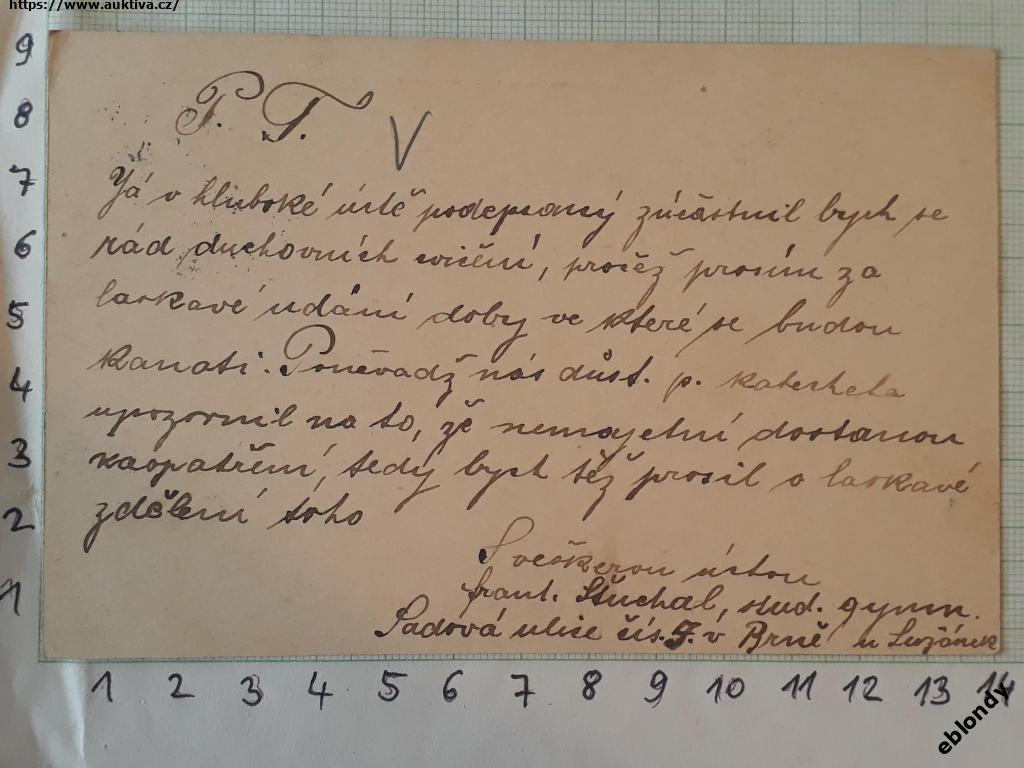 https://www.auktiva.cz/
P. T. V
Já v hluboké úctě podepsaný zúčastnil bych se
rád duchovních cvičení, pročež prosím za
laskavé udání doby ve které se budou
konati. Poněvadž nás důst. p. katecheta
upozornil na to, že nemajetní dostanou
zaopatření, tedy bych též prosil o laskavé
zdělení toho
S veškerou úctou
frant. Šťuchal, stud. gymn.
Sadová ulice čís. v Brně u Lužánek
9
8
7
6
5
4
3
2
1
1 2 3 4 5 6 7 8 9 10 11 12 13 14
eblondy